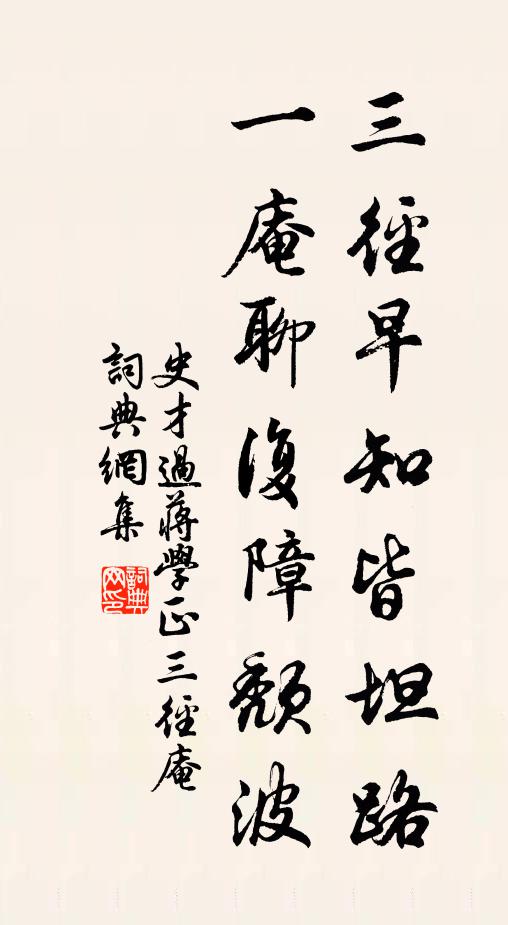 三徑早知皆坦路
一庵聊復障頹波
史才過蔣學正三徑庵
詞典網集
詞典網印